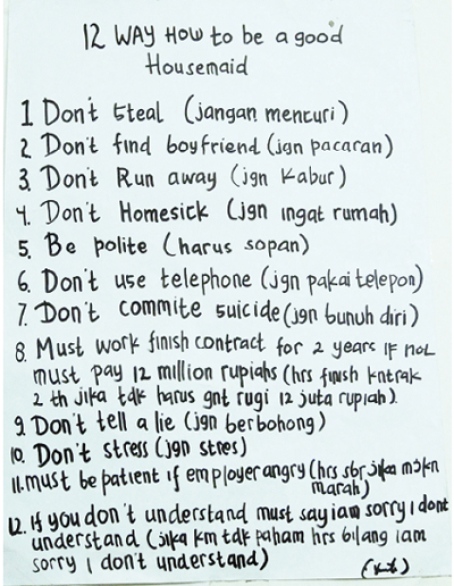 12 WAY HOW to be a good
Housemaid
1 Don't steal (jangan mencuri)
2 Don't find boyfriend (jgn pacaran)
3. Don't Run away (jgn kabur)
4. Don't Homesick (jgn ingat rumah)
5. Be polite (harus sopan)
6. Don't use telephone (jgn pakai telepon)
7. Don't commite suicide (jgn bunuh diri)
8. Must work finish contract for 2 years IF not
must pay 12 million rupiahs (hrs finish kntrak
2 th jika tdk harus gnt rugi 12 juta rupiah).
9. Don't tell a lie (jgn berbohong)
10. Don't stress (jgn stres)
11. must be patient if employer angry (hrs sbr jika mjkn
marah)
12. If you don't understand must say iam sorry I dont
understand (jika km tdk paham hrs bilang iam
sorry I don't understand)